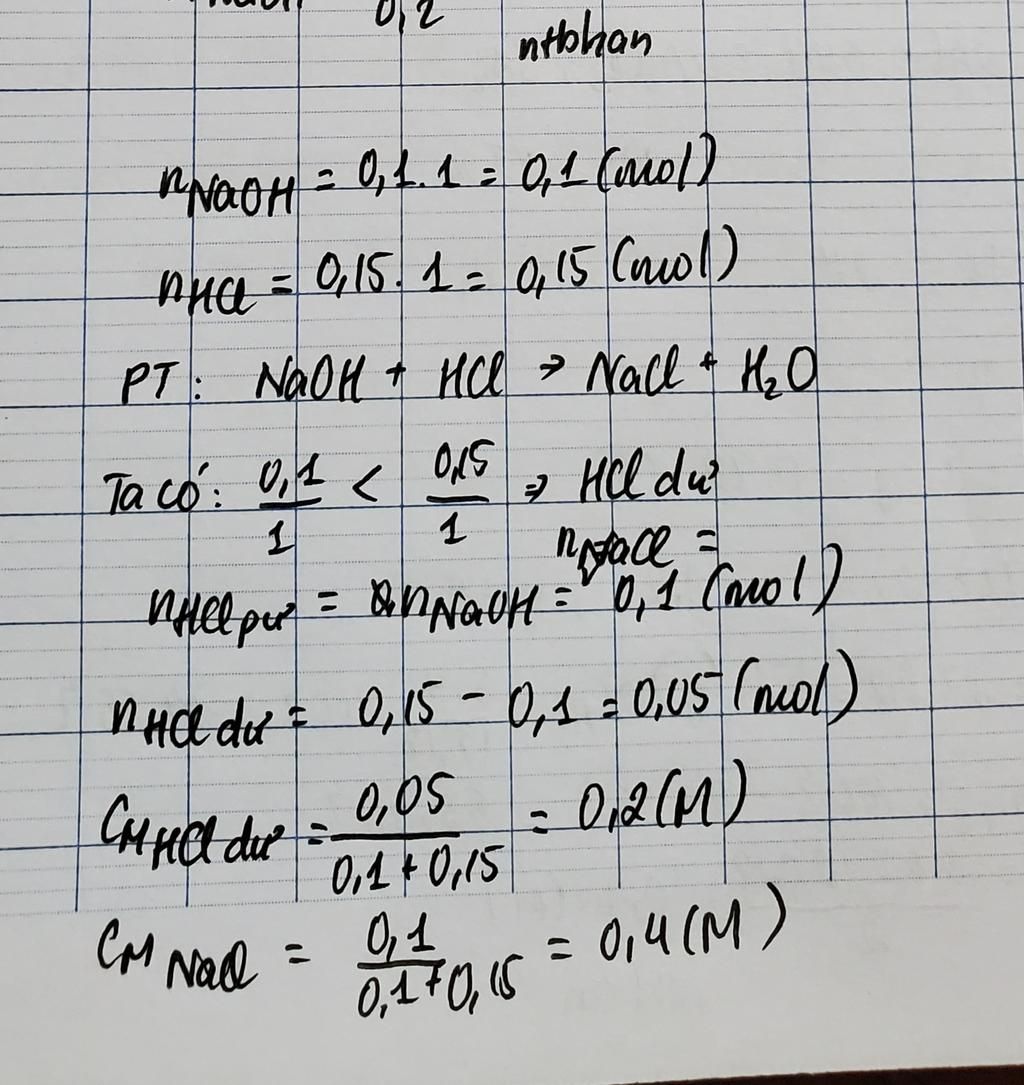 0,2
ntbhan
nNaOH = 0,1. 1 = 0,1 (mol)
nHCl = 0,15. 1 = 0,15 (mol)
PT: NaOH + HCl → NaCl + H₂O
Ta có: 0,1/1 < 0,15/1 ⇒ HCl dư
nNaCl =
nHCl pư = nNaOH = 0,1 (mol)
nHCl dư = 0,15 - 0,1 = 0,05 (mol)
CM HCl dư = 0,05/0,1 + 0,15 = 0,2 (M)
CM NaCl = 0,1/0,1 + 0,15 = 0,4 (M)